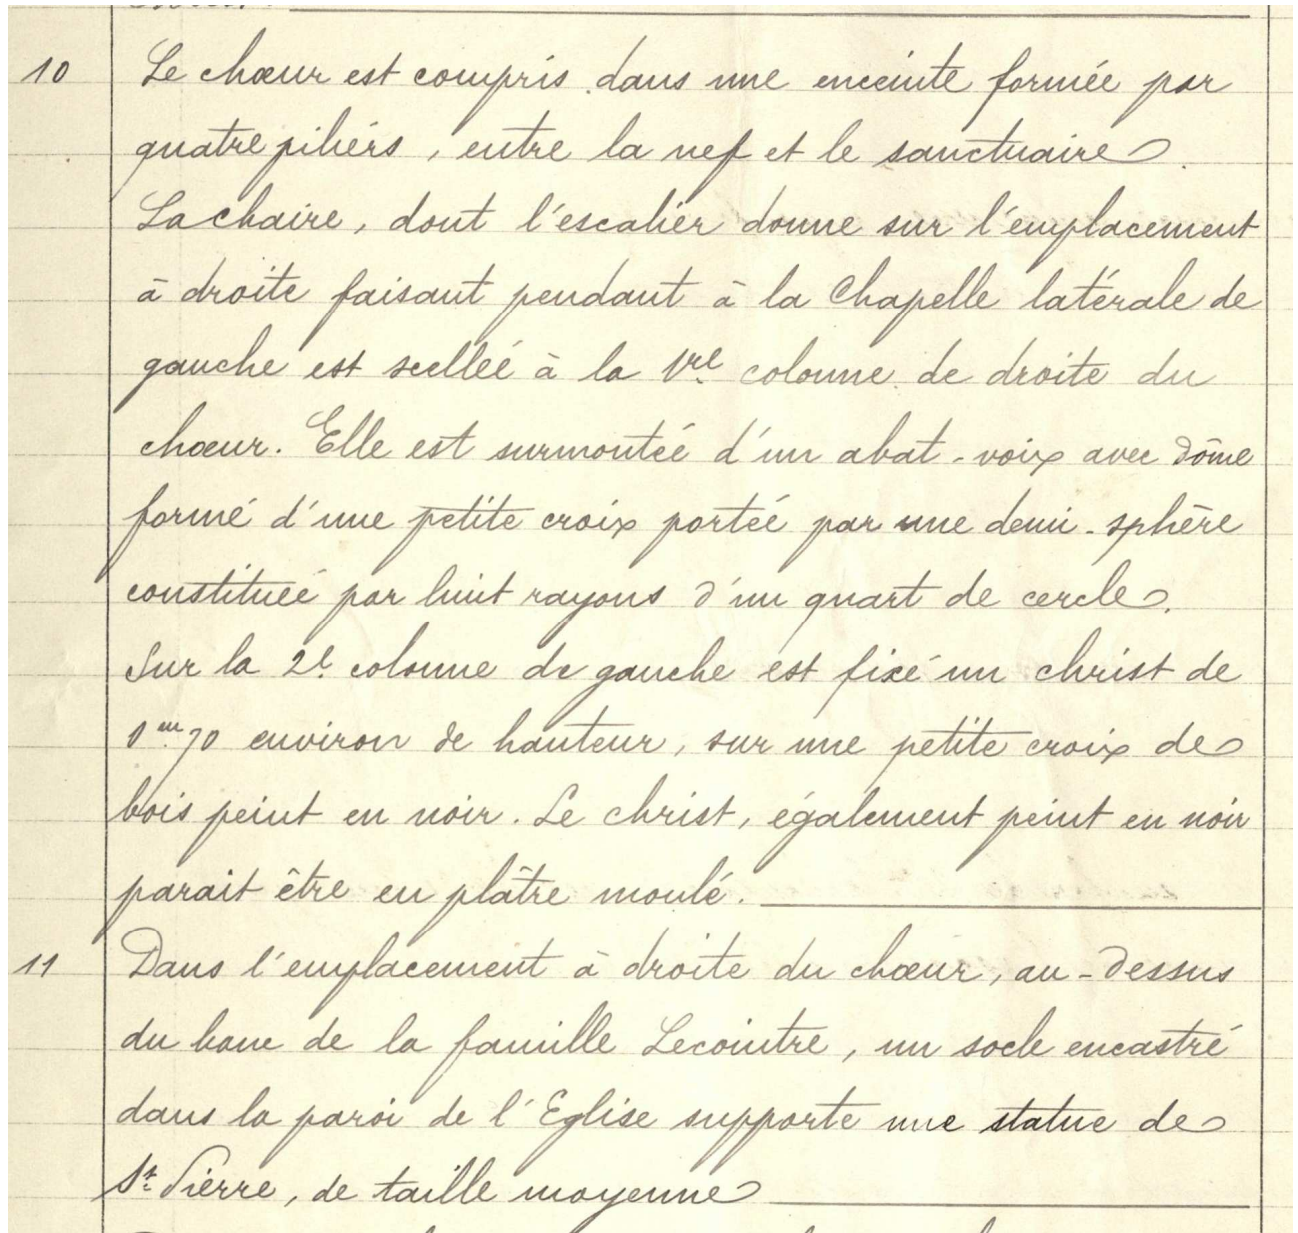 10 Le chœur est compris dans une enceinte formée par
quatre piliers, entre la nef et le sanctuaire.
La chaire, dont l'escalier donne sur l'emplacement
à droite faisant pendant à la Chapelle latérale de
gauche est scellée à la 1re colonne de droite du
chœur. Elle est surmontée d'un abat-voix avec dôme
formé d'une petite croix portée par une demi-sphère
constituée par huit rayons d'un quart de cercle.
Sur la 2e colonne de gauche est fixé un christ de
0m70 environ de hauteur, sur une petite croix de
bois peint en noir. Le christ, également peint en noir
parait être en plâtre moulé.
11 Dans l'emplacement à droite du chœur, au-dessus
du banc de la famille Lecointre, un socle encastré
dans la paroi de l'Eglise supporte une statue de
St Pierre, de taille moyenne